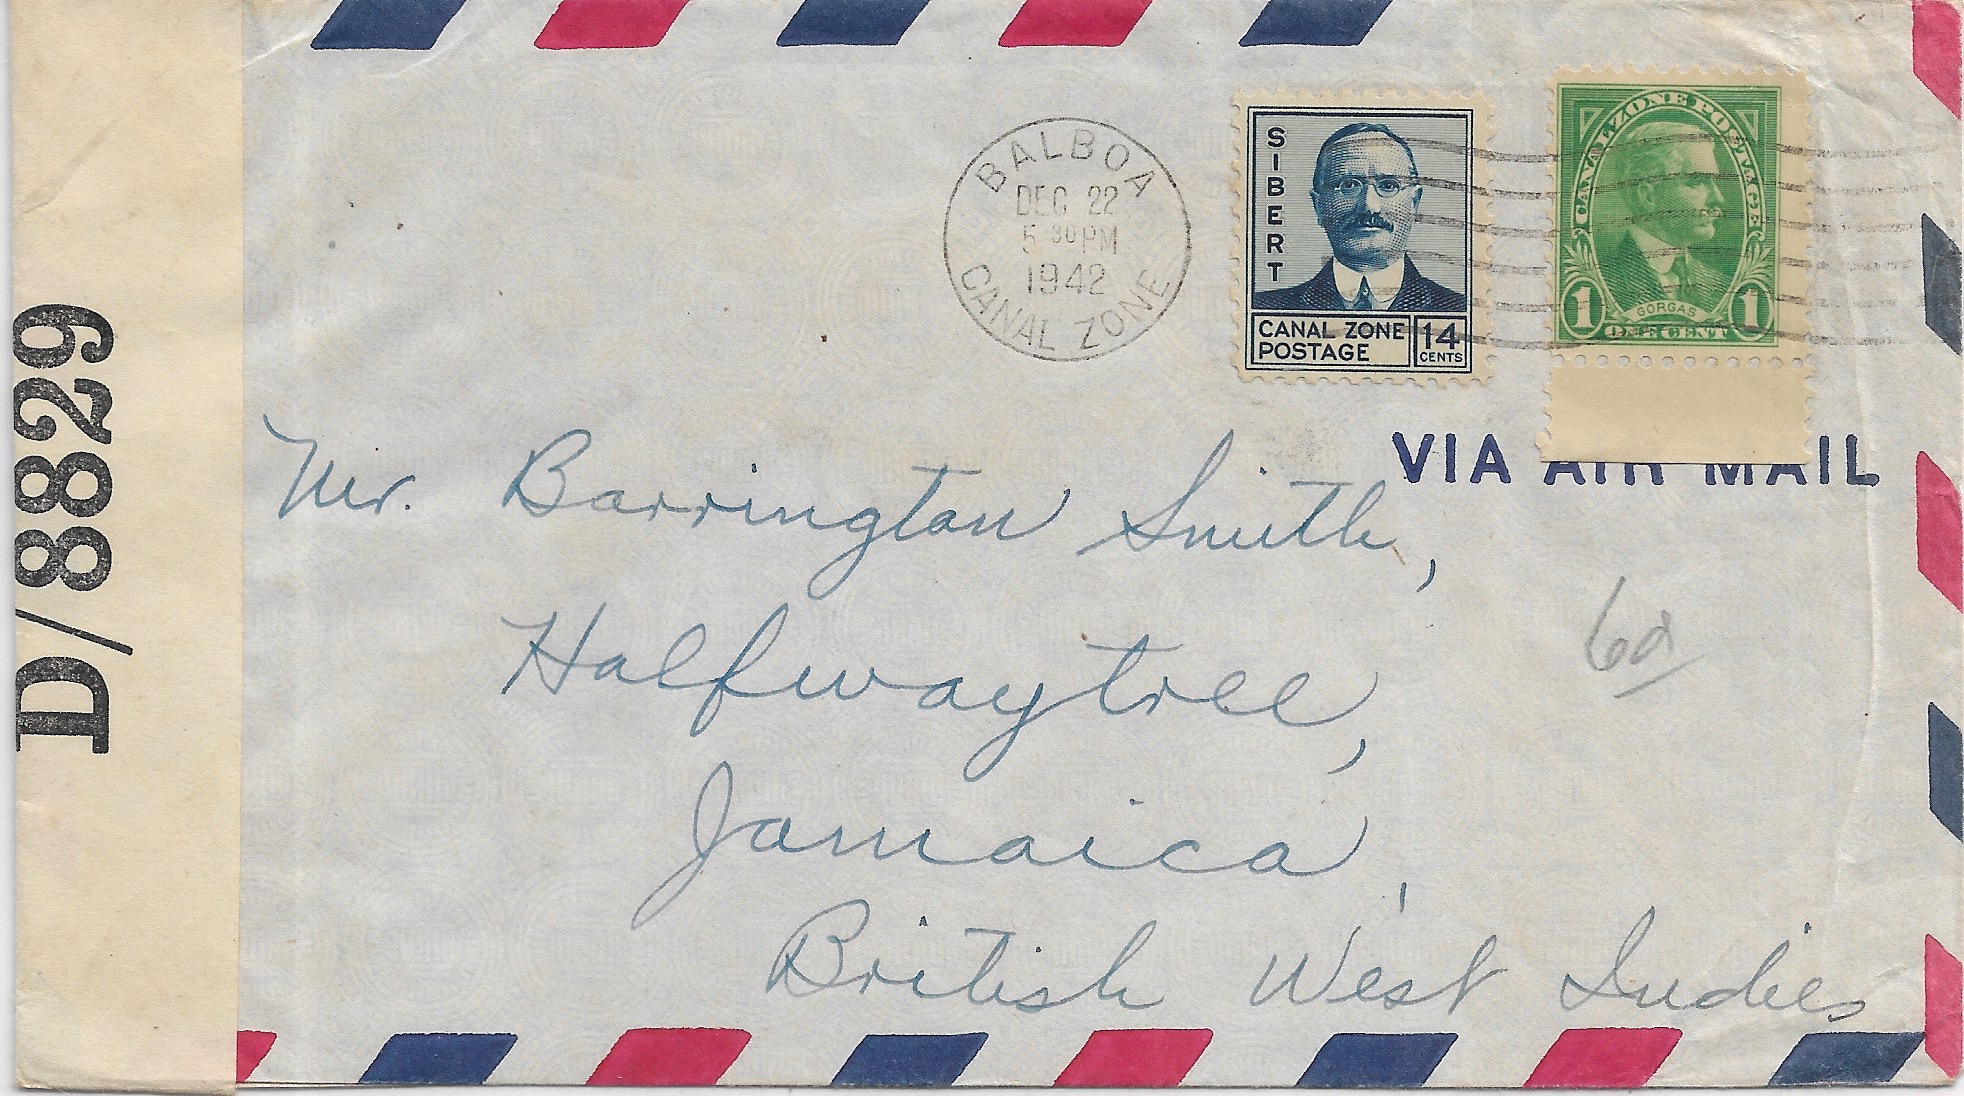 D/8829
BALBOA
DEC 22
5 30 PM
1942
CANAL ZONE
SIBERT
CANAL ZONE
POSTAGE
14
CENTS
CANAL ZONE POSTAGE
GORGAS
1 ONE CENT 1
VIA AIR MAIL
Mr. Barrington Smith,
Halfwaytree,
Jamaica,
British West Indies
6d